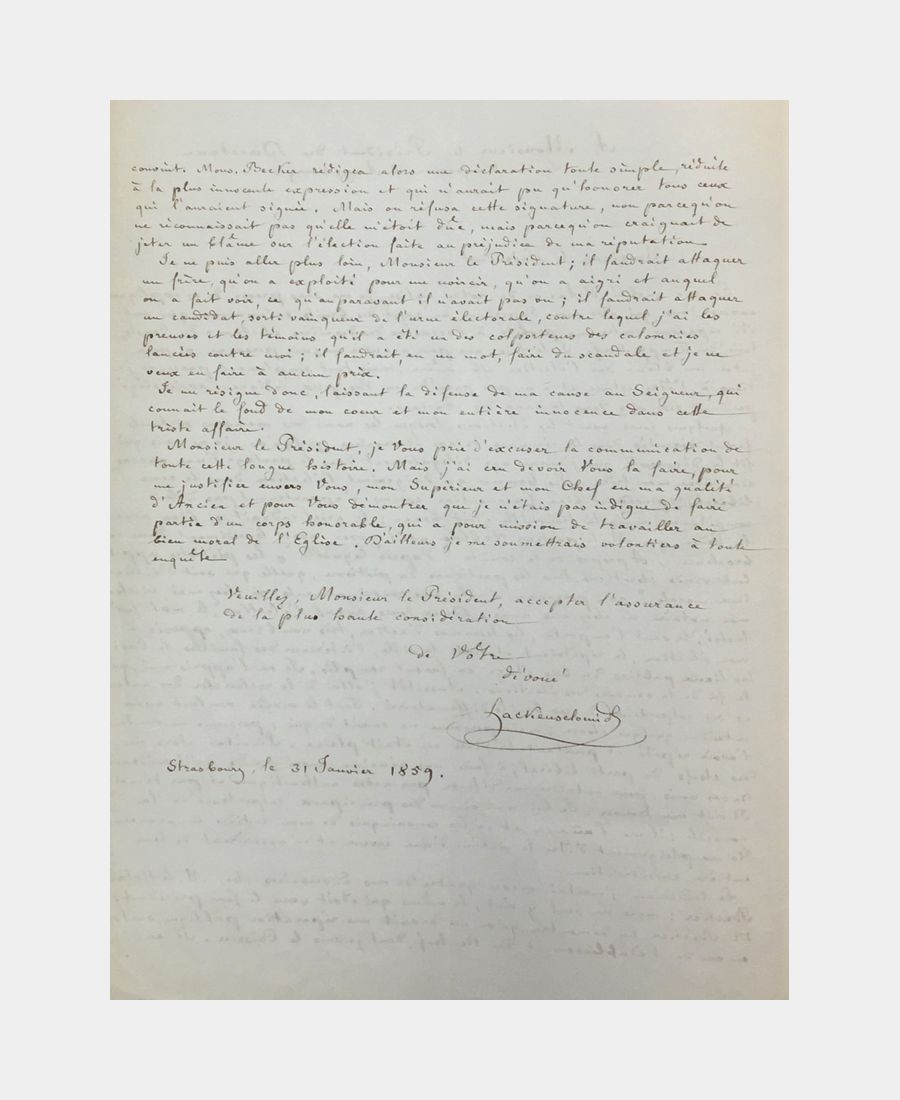 convint. Mons. Becker rédigea alors une déclaration toute simple, réduite
à la plus innocente expression et qui n'aurait pu qu'honorer tous ceux
qui l'auraient signée. Mais on réfusa cette signature, non parcequ'on
ne réconnaissait pas qu'elle m'étoit dûe, mais parcequ'on craignait de
jeter un blâme sur l'élection faite au préjudice de ma réputation
Je ne puis aller plus loin, Monsieur le Président; il faudrait attaquer
un frère, qu'on a exploité pour me noircir, qu'on a aigri et auquel
on a fait voir, ce qu'auparavant il n'avait pas vu; il faudrait attaquer
un candidat, sorti vainqueur de l'urne électorale, contre lequel j'ai les
preuves et les témoins qu'il a été un des colporteurs des calomnies
lancées contre moi; il faudrait, en un mot, faire du scandale et je ne
veux en faire à aucun prix.
Je me résigne donc, laissant la défense de ma cause au Seigneur, qui
connait le fond de mon coeur et mon entière innocence dans cette
triste affaire.
Monsieur le Président, je Vous prie d'excuser la communication de
toute cette longue histoire. Mais j'ai cru devoir Vous la faire, pour
me justifier envers Vous, mon Supérieur et mon Chef en ma qualité
d'Ancien et pour Vous démontrer que je n'étais pas indigne de faire
partie d'un corps honorable, qui a pour mission de travailler au
bien moral de l'Eglise. D'ailleurs je me soumettrais volontiers à toute
enquête
Veuillez, Monsieur le Président, accepter l'assurance
de la plus haute considération
de Vôtre
dévoué
Hackenschmidt
Strasbourg, le 31 Janvier 1859.